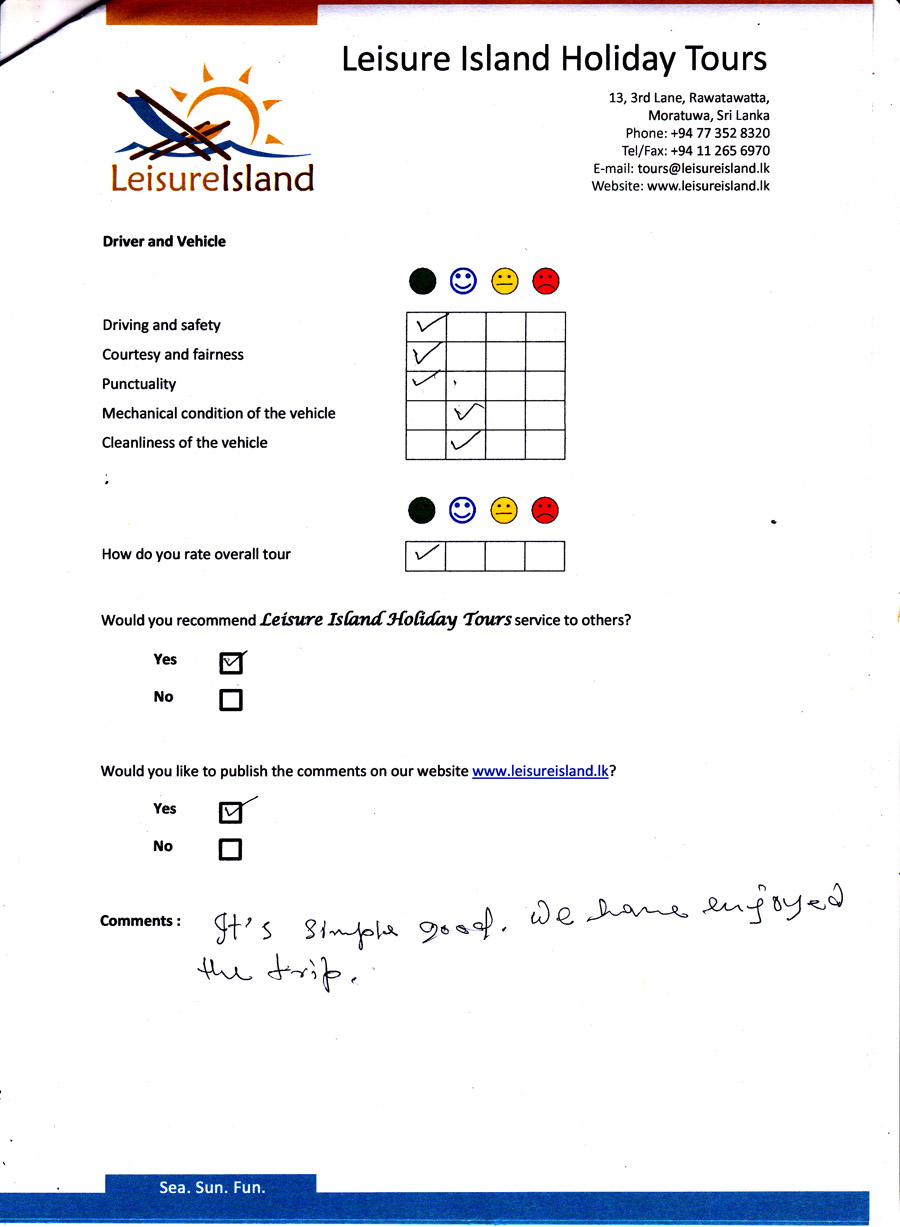 Leisure Island Holiday Tours
13, 3rd Lane, Rawatawatta,
Moratuwa, Sri Lanka
Phone: +94 77 352 8320
Tel/Fax: +94 11 265 6970
E-mail: tours@leisureisland.lk
Website: www.leisureisland.lk
LeisureIsland
Driver and Vehicle
Driving and safety
Courtesy and fairness
Punctuality
Mechanical condition of the vehicle
Cleanliness of the vehicle
How do you rate overall tour
Would you recommend Leisure Island Holiday Tours service to others?
Yes
No
Would you like to publish the comments on our website www.leisureisland.lk?
Yes
No
Comments : It's simple good. We have enjoyed
the trip.
Sea. Sun. Fun.